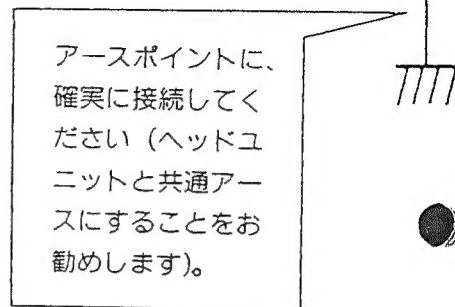 アースポイントに、
確実に接続してく
ださい（ヘッドユ
ニットと共通アー
スにすることをお
勧めします）。